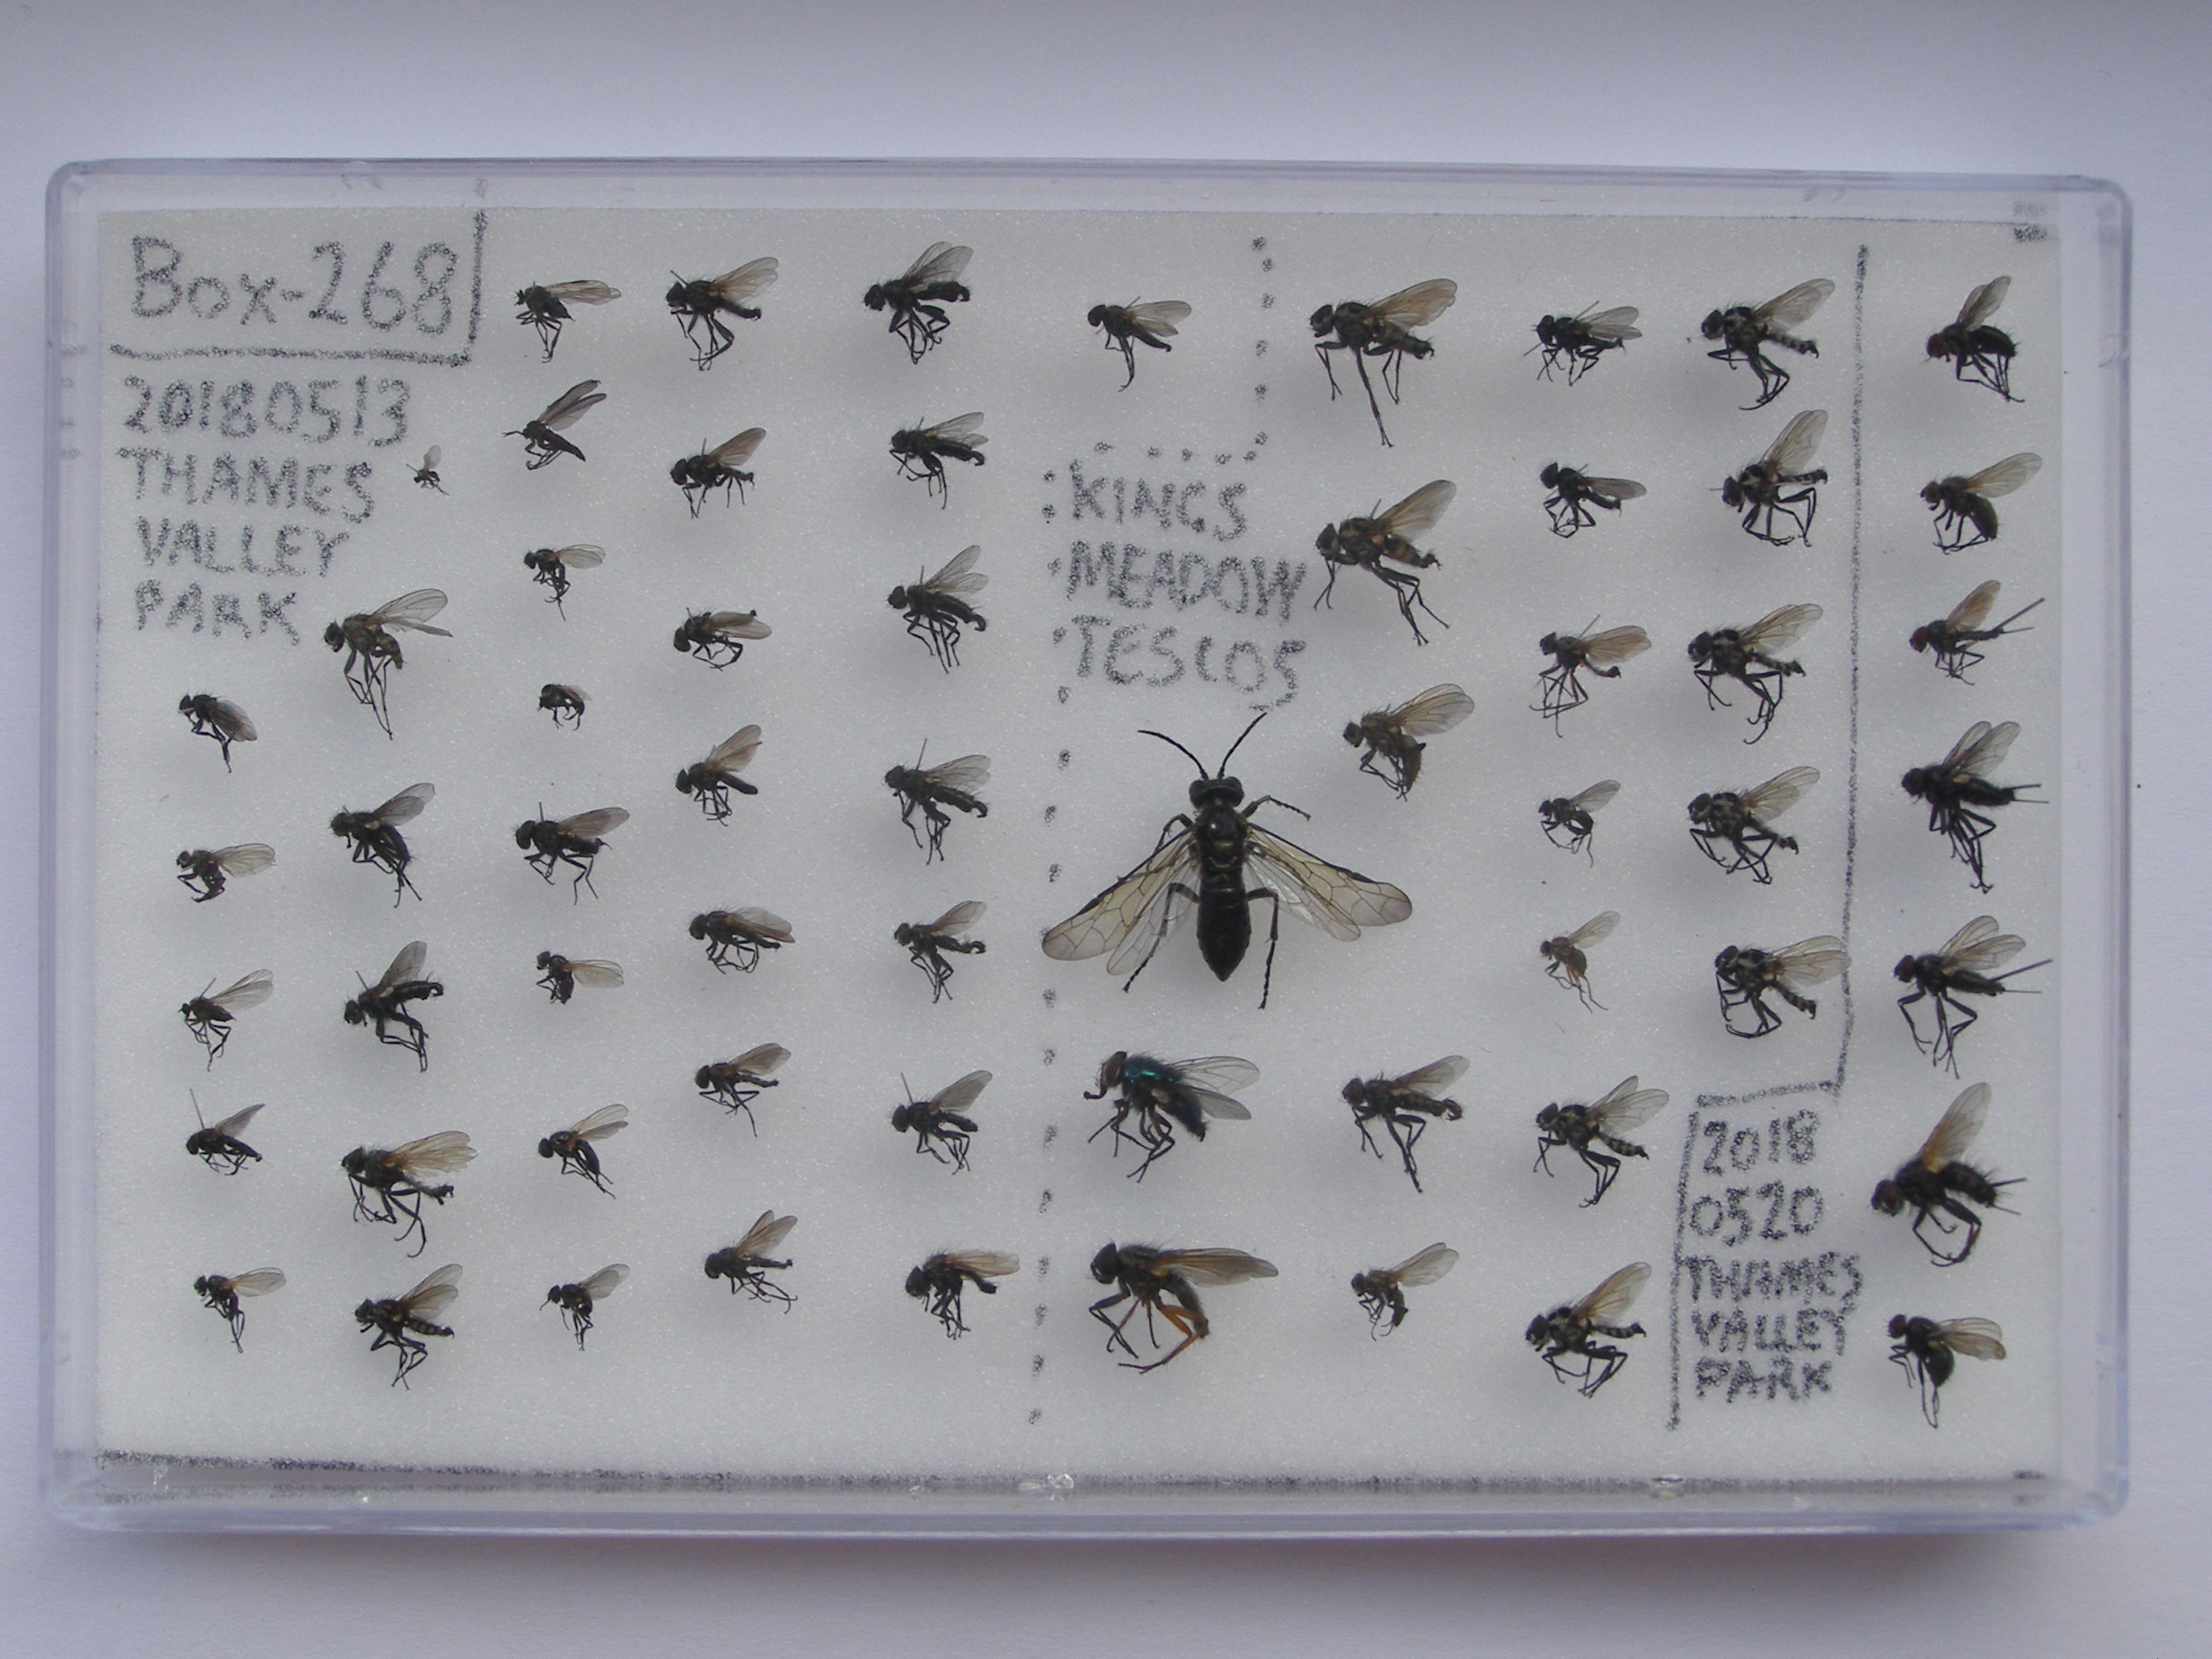 Box-268
20180513
THAMES
VALLEY
PARK
KINGS
MEADOW
TESCOS
2018
0520
THAMES
VALLEY
PARK